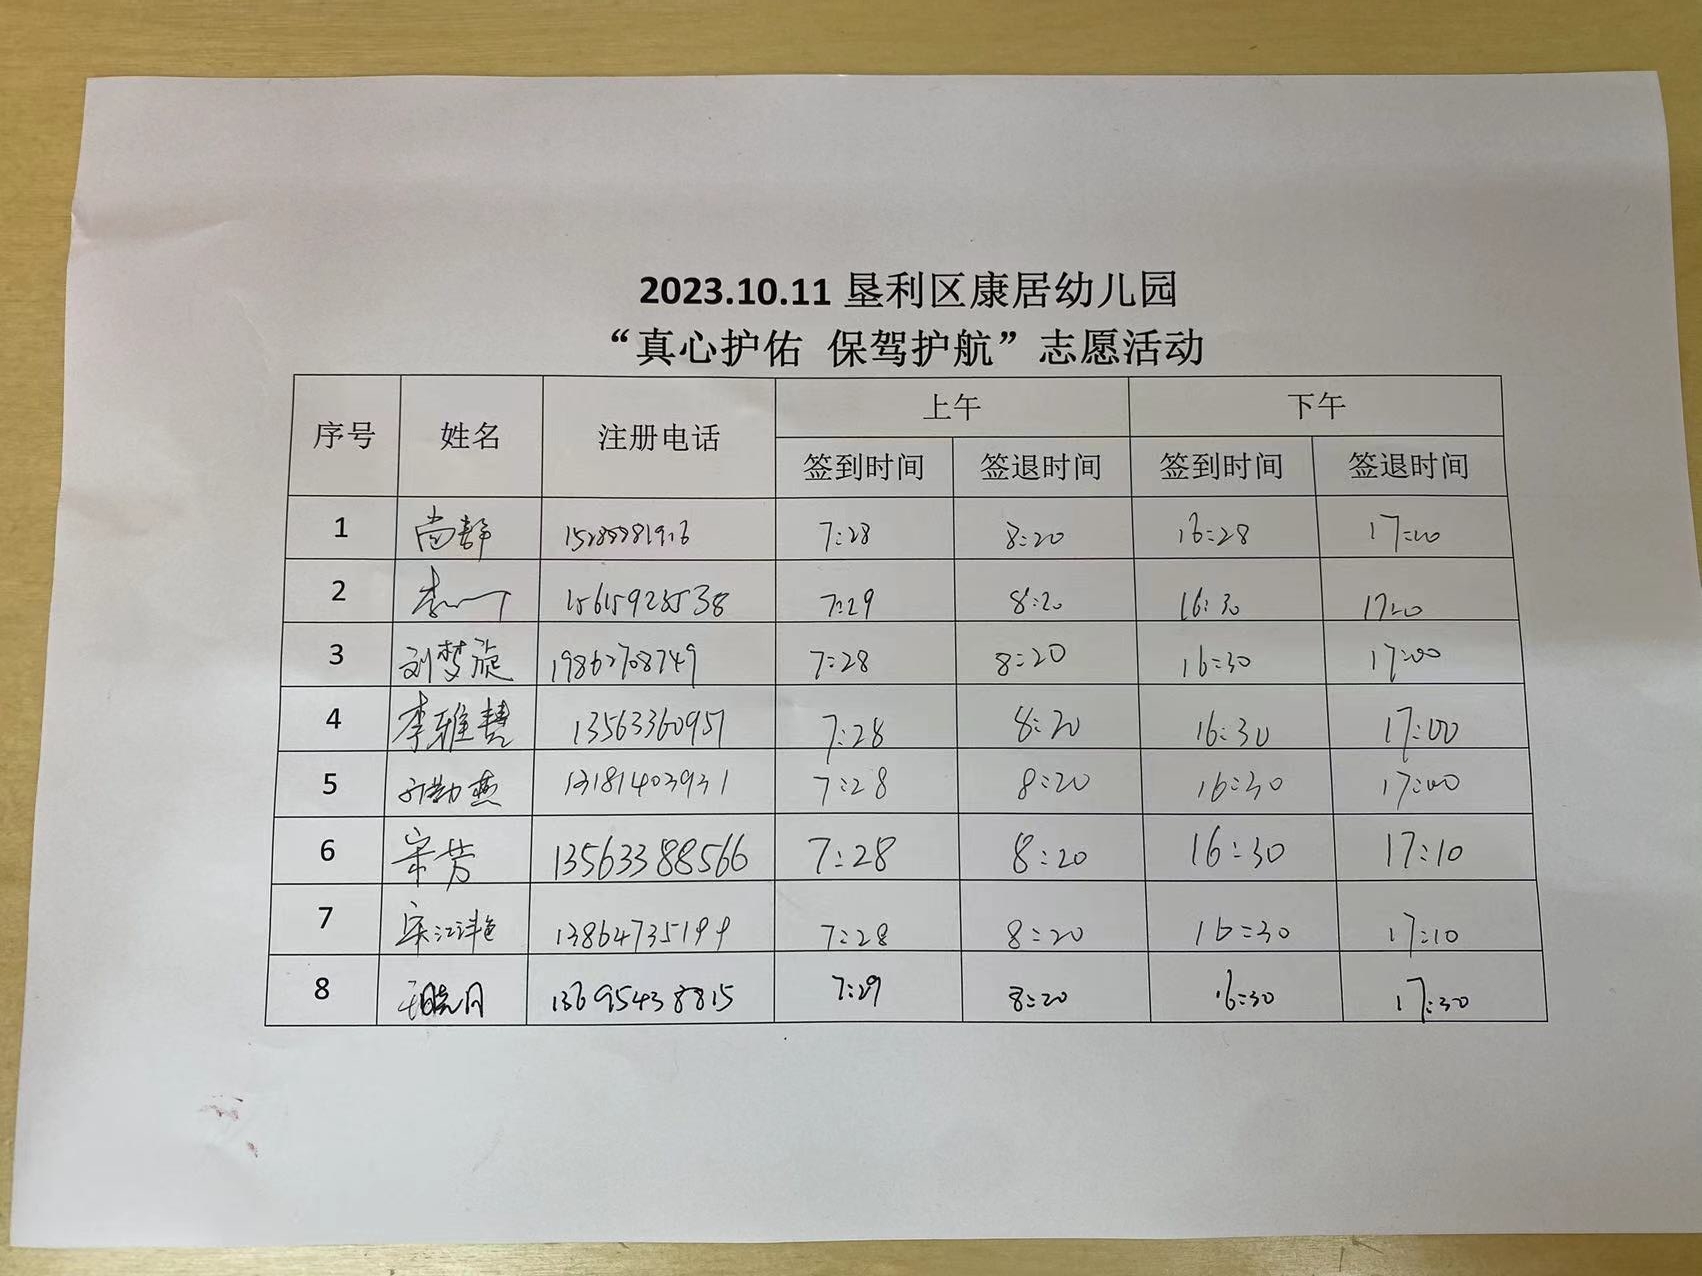 2023.10.11 垦利区康居幼儿园
“真心护佑 保驾护航”志愿活动
序号 姓名 注册电话 上午 下午
签到时间 签退时间 签到时间 签退时间
1 尚静 7:28 8:20 16:28 17:00
2 李一 15615928538 7:29 8:20 16:30 17:00
3 刘梦旋 19862708749 7:28 8:20 16:30 17:00
4 李雅慧 13563360951 7:28 8:20 16:30 17:00
5 13181403931 7:28 8:20 16:30 17:00
6 宋芳 13563388566 7:28 8:20 16:30 17:10
7 宋江泽 13864735199 7:28 8:20 16:30 17:10
8 13695438815 7:29 8:20 16:30 17:30